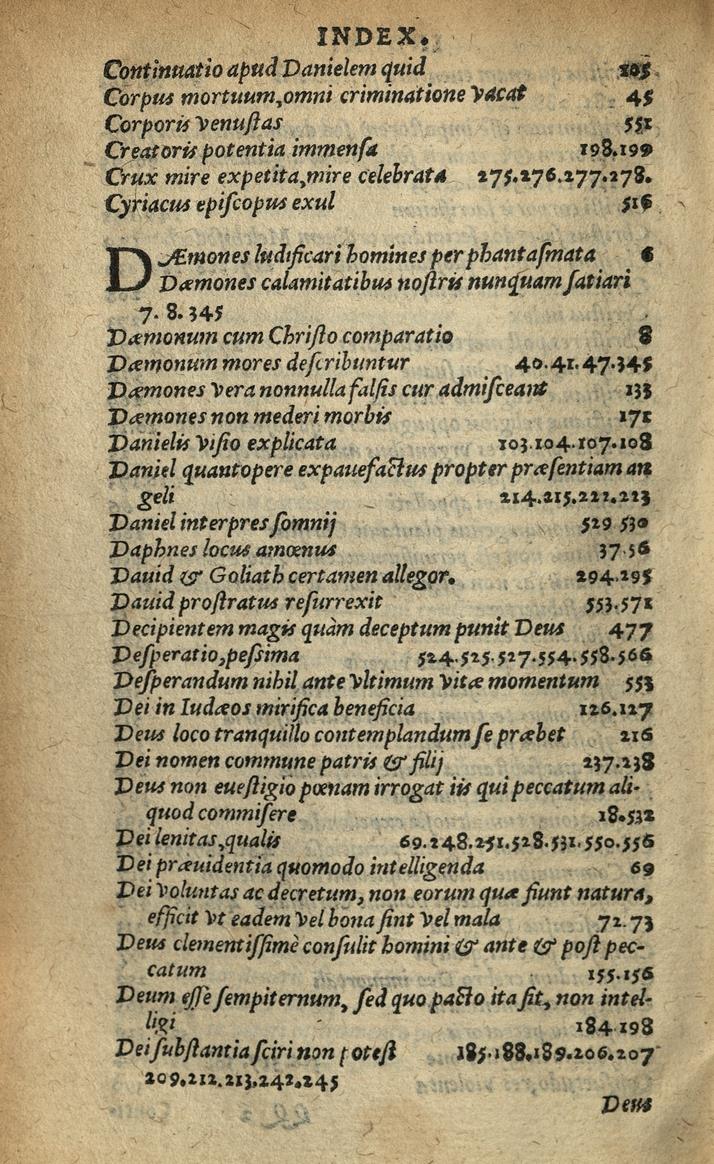 INDEX.
Continuatio apud Danielem quid 105
Corpus mortuum, omni criminatione vacat 45
Corporis venuſtas 551
Creatoris potentia immenſa 198.199
Crux mire expetita, mire celebrata 275.276.277.278.
Cyriacus epiſcopus exul 516
DÆmones ludificari homines per phantaſmata 6
Dæmones calamitatibus noſtris nunquam ſatiari
7. 8. 345
Dæmonum cum Chriſto comparatio 8
Dæmonum mores deſcribuntur 40.41.47.345
Dæmones vera nonnulla falſis cur admiſceant 133
Dæmones non mederi morbis 171
Danielis viſio explicata 103.104.107.108
Daniel quantopere expauefactus propter præſentiam an
geli 214.215.222.223
Daniel interpres ſomnij 529 530
Daphnes locus amœnus 37.56
Dauid & Goliath certamen allegor. 294.295
Dauid proſtratus reſurrexit 553.571
Decipientem magis quàm deceptum punit Deus 477
Deſperatio, peſsima 524.525.527.554.558.566
Deſperandum nihil ante vltimum vitæ momentum 553
Dei in Iudæos mirifica beneficia 126.127
Deus loco tranquillo contemplandum ſe præbet 216
Dei nomen commune patris & filij 237.238
Deus non eueſtigio pœnam irrogat iis qui peccatum ali-
quod commiſere 18.532
Dei lenitas, qualis 69.248.251.528.531.550.556
Dei præuidentia quomodo intelligenda 69
Dei voluntas ac decretum, non eorum quæ fiunt natura,
efficit vt eadem vel bona ſint vel mala 72.73
Deus clementiſſimè conſulit homini & ante & poſt pec-
catum 155.156
Deum eſſe ſempiternum, ſed quo pacto ita ſit, non intel-
ligi 184.198
Dei ſubſtantia ſciri non poteſt 185.188.189.206.207
209.212.213.242.245
Deus